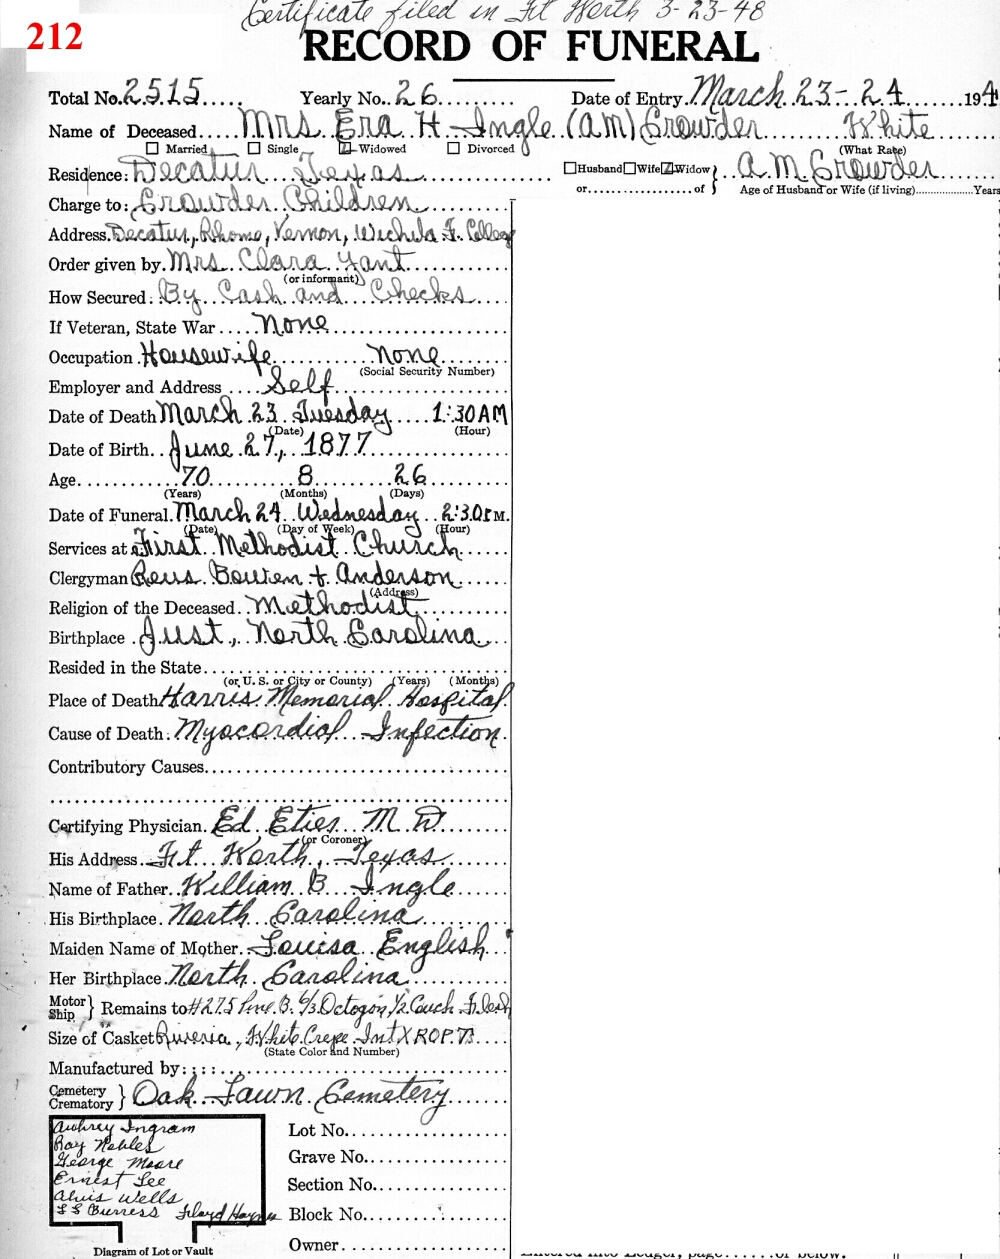 Certificate filed in Ft Worth 3-23-48
212
RECORD OF FUNERAL
Total No. 2515 Yearly No. 26 Date of Entry March 23-24 194
Name of Deceased Mrs Era H Ingle (AM) Crowder White
Married Single Widowed Divorced (What Rate)
Residence: Decatur Texas Husband Wife Widow A.M. Crowder
or of Age of Husband or Wife (if living) Years
Charge to: Crowder Children
Address. Decatur, Rhome, Vernon, Wichita F. College
Order given by. Mrs Clara Yant
(or informant)
How Secured: By Cash and Checks
If Veteran, State War None
Occupation Housewife None
(Social Security Number)
Employer and Address Self
Date of Death March 23 Tuesday 1:30 AM
(Date) (Hour)
Date of Birth June 27, 1877
Age 70 8 26
(Years) (Months) (Days)
Date of Funeral. March 24 Wednesday 2:30 P M.
(Date) (Day of Week) (Hour)
Services at First Methodist Church
Clergyman Revs. Bowen + Anderson
(Address)
Religion of the Deceased Methodist
Birthplace Just, North Carolina
Resided in the State
(or U. S. or City or County) (Years) (Months)
Place of Death Harris Memorial Hospital
Cause of Death. Myocardial Infection
Contributory Causes
Certifying Physician. Ed Etier M D
(or Coroner)
His Address Ft Worth, Texas
Name of Father William B Ingle
His Birthplace North Carolina
Maiden Name of Mother. Louisa English
Her Birthplace North Carolina
Motor Ship } Remains to #275 Pine B. 6/3 Octogon 1/2 Couch Flesh
Size of Casket Riveria, White Crepe Int X ROP 73
(State Color and Number)
Manufactured by:
Cemetery Crematory } Oak Lawn Cemetery
Aubrey Ingram
Roy Nobles
George Moore
Ernest Lee
Alvis Wells
Burress Floyd Haynes
Diagram of Lot or Vault
Lot No.
Grave No.
Section No.
Block No.
Owner
Entered into Ledger, page or below.